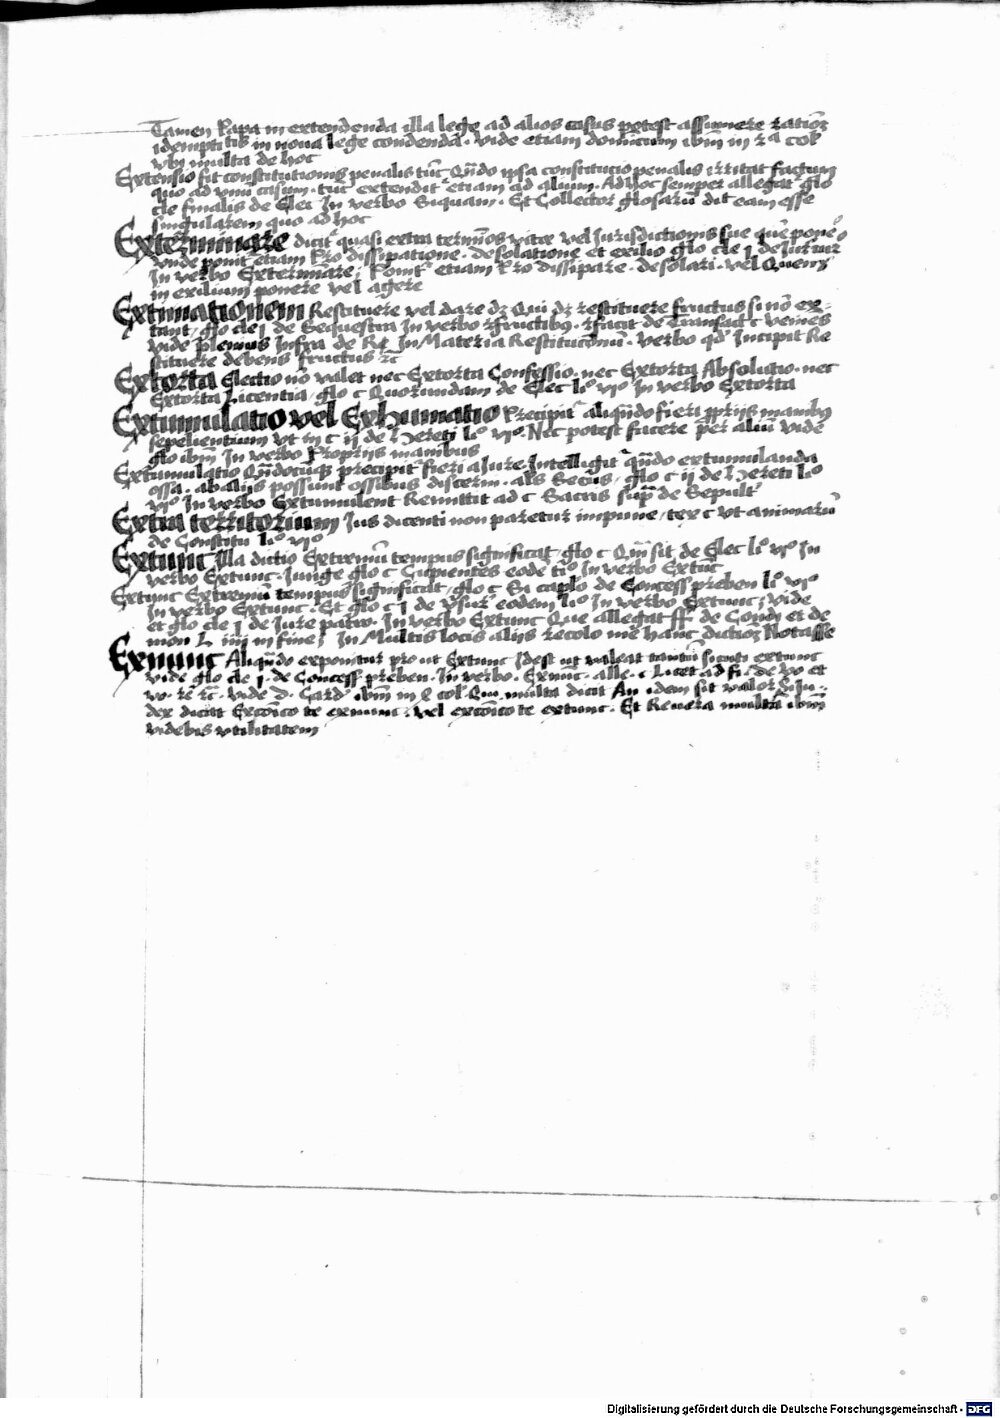 Tamen Papa in extendenda illa lege ad alios casus potest assumere ratiōȝ
idemptitis in noua lege condenda. vide etiam dominicum ibm̄ in 2ª col
vbi multa de hoc
Extensio fit constitutionis penalis tūc Qn̄do ipsa constitucio penalis irritat factum
quo ad vnū casum. tūc extendit etiam ad alium. Ad hoc semper allegat glo
cle finalis de Elec In verbo Siquam. Et Collector glosarū dīt eam esse
singularem quo ad hoc
Exterminare dicit quasi extra termīos vite vel Jurisdictionis sue quē ponē
vnde ponit etiam Pro dissipatione. desolatione et exilio glo cle j de Jureiur
In verbo Exterminare; Ponit etiam Pro dissipare. desolari. vel Quenȝ
in exilium ponere vel agere
Extimationem Restituere vel dare dȝ Qui dȝ restituere fructus si nō ex-
tant, glo cle j de Sequestra In verbo fructibȝ. facit de Transact c veniēs
vide plenius Infra de In Materia Restitucōnū. verbo qd Incipit Re
stituere debens fructus ⁊c̄
Extorta Electio nō valet nec Extorta Confessio. nec Extorta Absolutio. nec
Extorta Licentia, glo c Quorundam de Elec li° vi° In verbo Extorta
Extumulatio vel Exhumatio Precipit aliqn̄do fieri pprijs manibȝ
sepelientium vt in c ij de Hereti li° vi°. Nec potest facere per aliū vide
glo ibm̄ In verbo Proprijs manibus
Extumulatio Qn̄docūqȝ precipit fieri a Jure Intelligit qn̄do extumulanda
ossa. ab alijs possunt ossibus discerni. als Secus, glo c ij de Hereti li°
vi° In verbo Extumulent Remittit ad c Sacris sup̄ de Sepult
Extra territorium Jus dicenti non paretur impune, tex c Vt animarū
de Constitu li° vi°
Extunc Illa dictio Extremū tempus significat, glo c Qm̄ sit de Elec li° vi° In
verbo Extunc. Junge glo c Cupientes eode ti° In verbo Extūc
Extunc Extremū tempus significat, glo c Si capl'o de Concess preben li° vi°
In verbo Extunc. Et glo c j de vsur eodem li° In verbo Extunc; vide
et glo cle j de Jure patro. In verbo Extunc Que allegat ff de Condi et de
mon L iiij in fine; In Multis locis alijs recolo me hanc dictioȝ Notasse
Exnunc Aliqn̄do exponitur pro ut Extunc Jdest ut valeat tantū sicuti extunc
vide glo cle j. de Concess preben. In verbo. Exnūc. alle. c Licet ad fi. de vo et
vo. re ⁊c̄. vide d. Card ibm̄ in col Qui multa dicit An idem sit valor si Ju-
dex dicat Excōico te exnunc. vel excōico te extunc. Et Reuera multa ibm̄
videbis vtilitatem
Digitalisierung gefördert durch die Deutsche Forschungsgemeinschaft - DFG